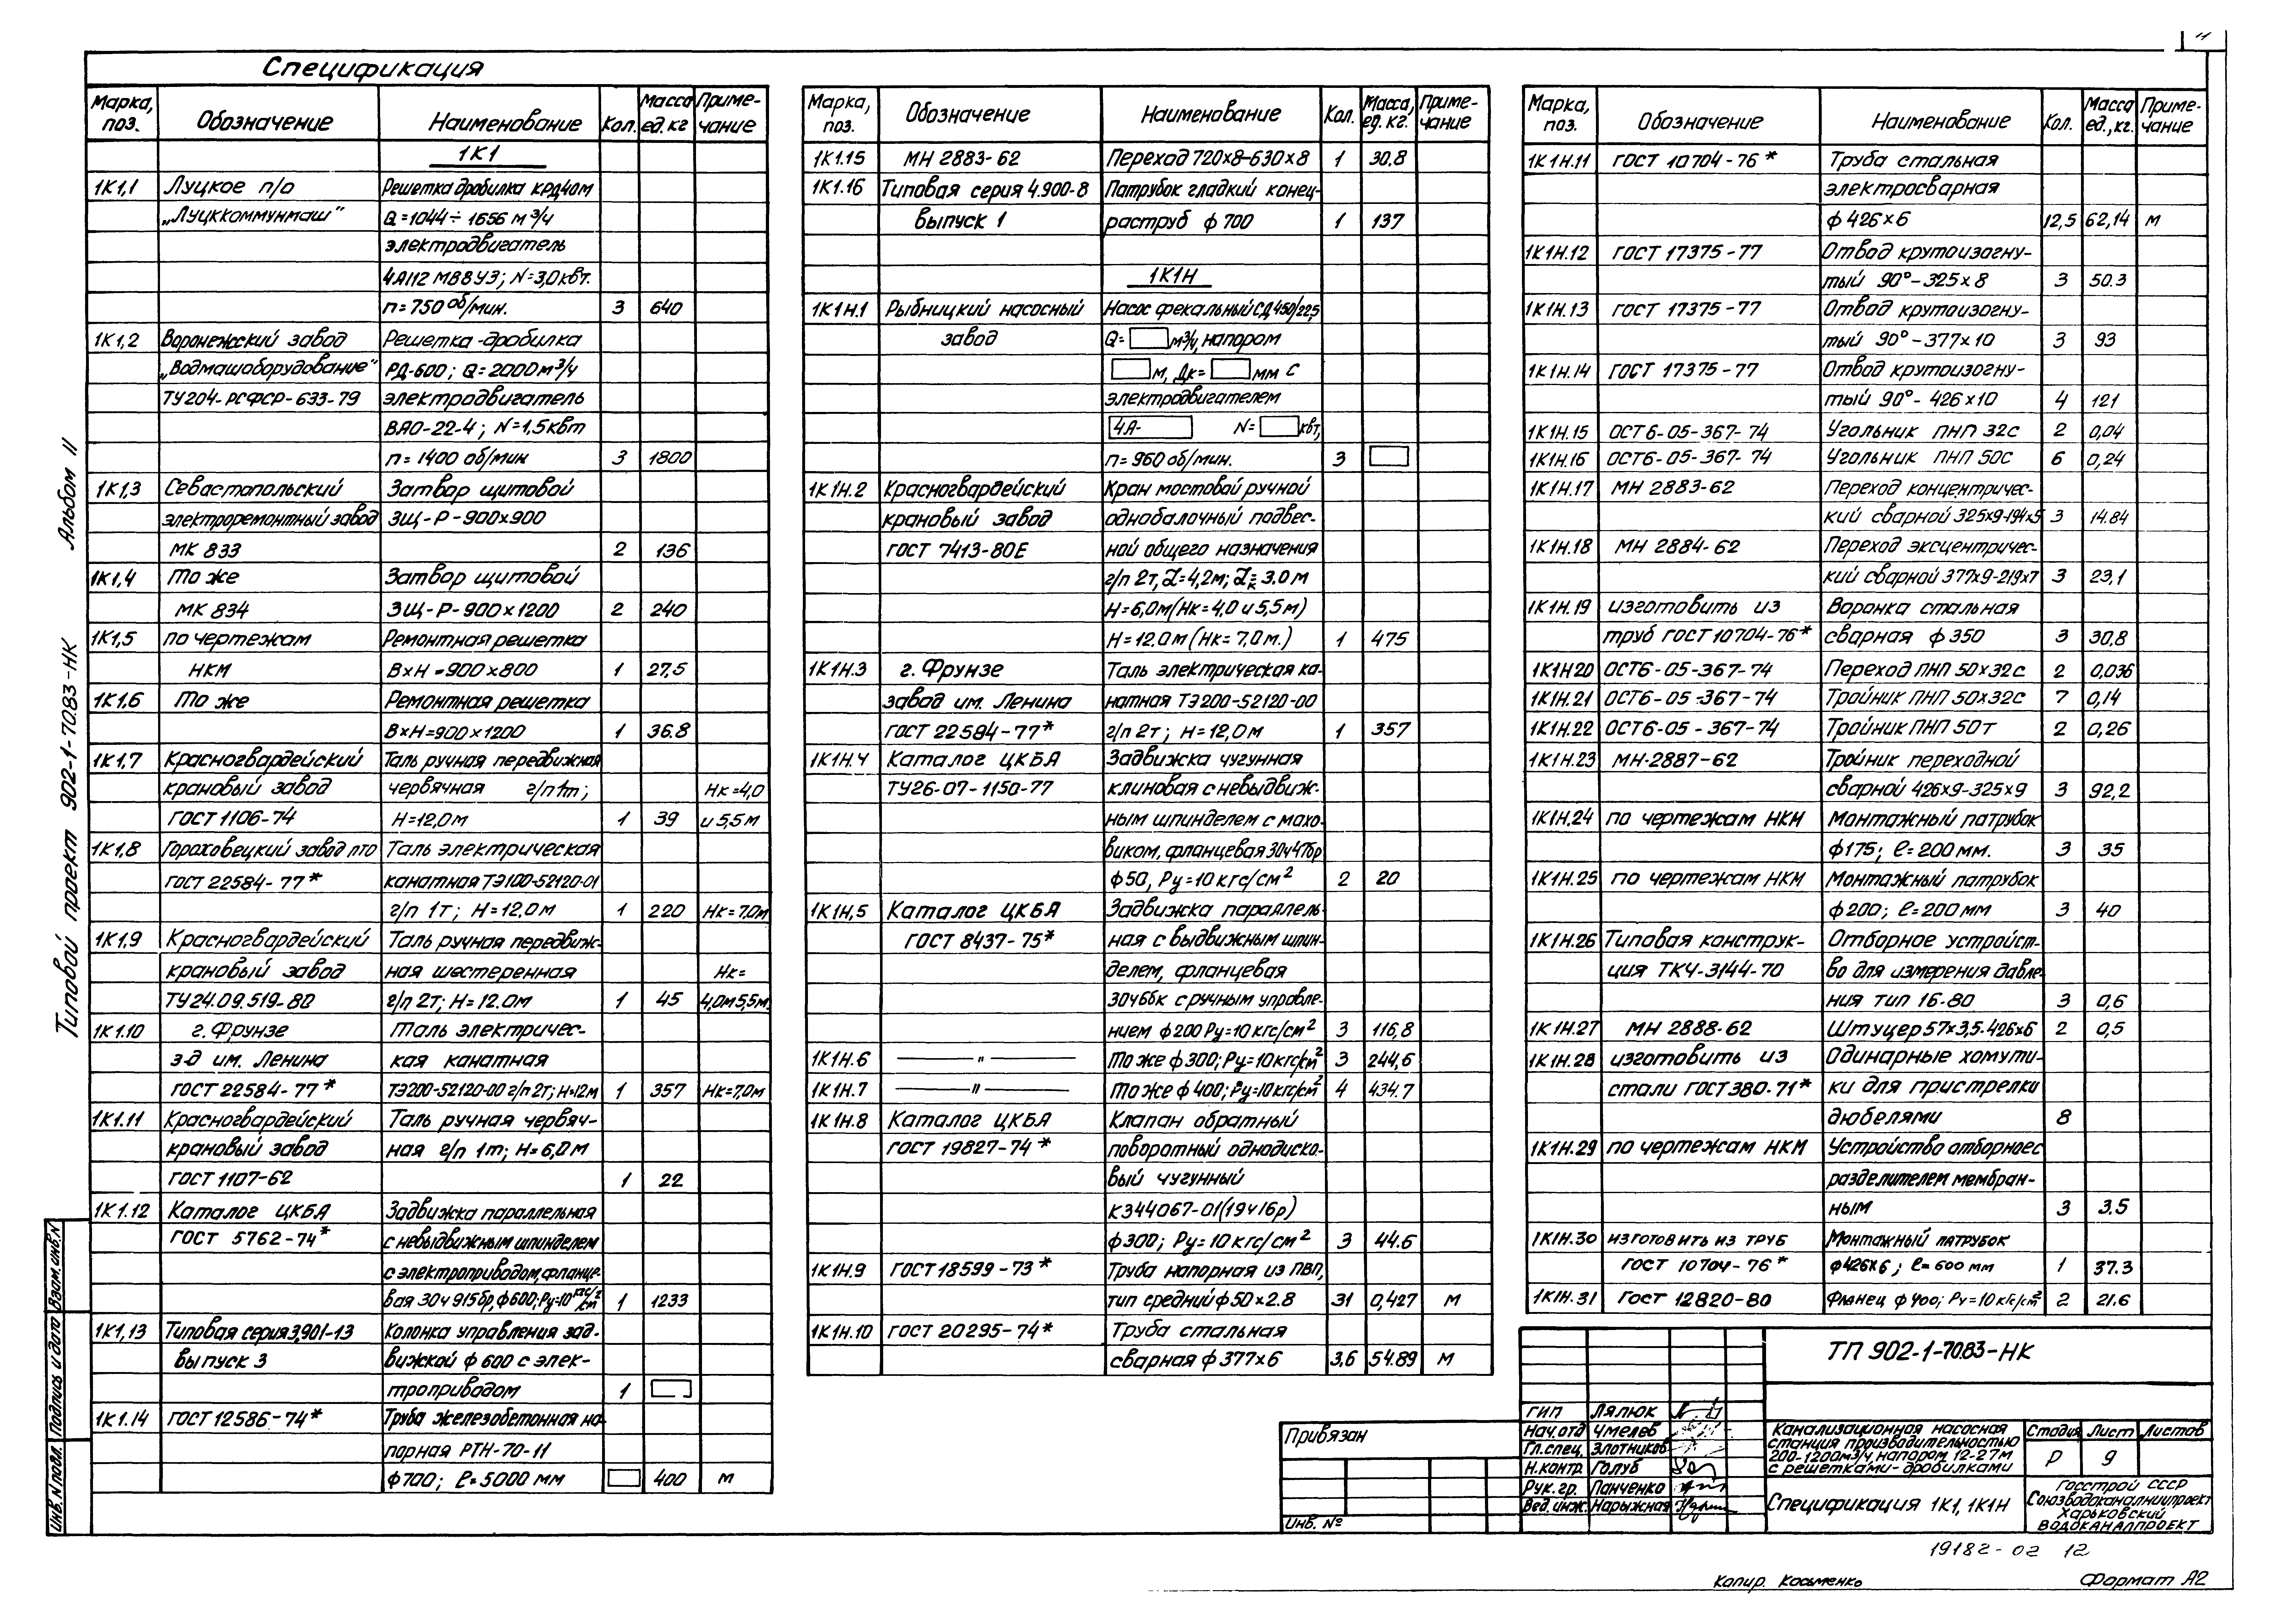 11
Спецификация
Марка, поз. Обозначение Наименование Кол. Масса ед. кг Приме-чание
1К1
1К1,1 Луцкое п/о Решетка дробилка КРД40м
„Луцккоммунмаш" Q=1044÷1656 м³/ч
электродвигатель
4А112 МВ8У3; N=3,0квт.
n=750 об/мин. 3 640
1К1,2 Воронежский завод Решетка-дробилка
„Водмашоборудование" РД-600; Q=2000м³/ч
ТУ204-РСФСР-633-79 электродвигатель
ВАО-22-4; N=1,5квт
n=1400 об/мин 3 1800
1К1,3 Севастопольский Затвор щитовой
электроремонтный завод ЗЩ-Р-900х900
МК 833 2 136
1К1,4 То же Затвор щитовой
МК 834 ЗЩ-Р-900х1200 2 240
1К1,5 по чертежам Ремонтная решетка
НКМ ВхН=900х800 1 27,5
1К1.6 То же Ремонтная решетка
ВхН=900х1200 1 36.8
1К1.7 Красногвардейский Таль ручная передвижная
крановый завод червячная г/п 1т; Нк=4,0
ГОСТ 1106-74 Н=12,0м 1 39 и 5,5м
1К1.8 Гороховецкий завод ПТО Таль электрическая
ГОСТ 22584-77* канатная ТЭ100-52120-01
г/п 1т; Н=12,0м 1 220 Нк=7,0м
1К1.9 Красногвардейский Таль ручная передвиж-
крановый завод ная шестеренная Нк=
ТУ24.09.519-80 г/п 2т; Н=12.0м 1 45 4,0м5,5м
1К1.10 г. Фрунзе Таль электричес-
з-д им. Ленина кая канатная
ГОСТ 22584-77* ТЭ200-52120-00 г/п 2т; Н=12м 1 357 Нк=7,0м
1К1.11 Красногвардейский Таль ручная червяч-
крановый завод ная г/п 1т; Н=6,0м
ГОСТ 1107-62 1 22
1К1.12 Каталог ЦКБА Задвижка параллельная
ГОСТ 5762-74* с невыдвижным шпинделем
с электроприводом, фланце-
вая 30ч915бр, ф600; Ру=10 кгс/см² 1 1233
1К1,13 Типовая серия 3,901-13 Колонка управления зад-
выпуск 3 вижкой ф 600 с элек-
троприводом 1
1К1.14 ГОСТ 12586-74* Труба железобетонная на-
порная РТН-70-11
ф700; ℓ=5000 мм 400 м
Марка, поз. Обозначение Наименование Кол. Масса, ед. кг. Приме-чание
1К1.15 МН 2883-62 Переход 720х8-630х8 1 30,8
1К1.16 Типовая серия 4.900-8 Патрубок гладкий конец-
выпуск 1 раструб ф 700 1 137
1К1Н
1К1Н.1 Рыбницкий насосный Насос фекальный СД 450/22,5
завод Q= м³/ч, напором
м, Дк= мм с
электродвигателем
4А- N= квт,
n=960 об/мин. 3
1К1Н.2 Красногвардейский Кран мостовой ручной
крановый завод однобалочный подвес-
ГОСТ 7413-80Е ной общего назначения
г/п 2т, L=4,2м; Lк=3.0м
Н=6,0м(Нк=4,0 и 5,5м)
Н=12.0м (Нк=7,0м.) 1 475
1К1Н.3 г. Фрунзе Таль электрическая ка-
завод им. Ленина натная ТЭ200-52120-00
ГОСТ 22584-77* г/п 2т; Н=12,0м 1 357
1К1Н.4 Каталог ЦКБА Задвижка чугунная
ТУ26-07-1150-77 клиновая с невыдвиж-
ным шпинделем с махо-
виком, фланцевая 30ч47бр
ф50, Ру=10кгс/см² 2 20
1К1Н,5 Каталог ЦКБА Задвижка параллель-
ГОСТ 8437-75* ная с выдвижным шпин-
делем, фланцевая
30ч6бк с ручным управле-
нием ф200 Ру=10кгс/см² 3 116,8
1К1Н.6 —"— То же ф300; Ру=10кгс/см² 3 244,6
1К1Н.7 —"— То же ф400; Ру=10кгс/см² 4 434.7
1К1Н.8 Каталог ЦКБА Клапан обратный
ГОСТ 19827-74* поворотный однодиско-
вый чугунный
К344067-01(19ч16р)
ф300; Ру=10кгс/см² 3 44.6
1К1Н.9 ГОСТ 18599-73* Труба напорная из ПВП,
тип средний ф50х2.8 31 0,427 м
1К1Н.10 ГОСТ 20295-74* Труба стальная
сварная ф377х6 3,6 54.89 м
Марка, поз. Обозначение Наименование Кол. Масса ед., кг. Приме-чание
1К1Н.11 ГОСТ 10704-76* Труба стальная
электросварная
ф426х6 12,5 62,14 м
1К1Н.12 ГОСТ 17375-77 Отвод крутоизогну-
тый 90°-325х8 3 50.3
1К1Н.13 ГОСТ 17375-77 Отвод крутоизогну-
тый 90°-377х10 3 93
1К1Н.14 ГОСТ 17375-77 Отвод крутоизогну-
тый 90°-426х10 4 121
1К1Н.15 ОСТ6-05-367-74 Угольник ПНП 32с 2 0,04
1К1Н.16 ОСТ6-05-367-74 Угольник ПНП 50с 6 0,24
1К1Н.17 МН 2883-62 Переход концентричес-
кий сварной 325х9-194х5 3 14.84
1К1Н.18 МН 2884-62 Переход эксцентричес-
кий сварной 377х9-219х7 3 23,1
1К1Н.19 изготовить из Воронка стальная
труб ГОСТ 10704-76* сварная ф350 3 30,8
1К1Н20 ОСТ6-05-367-74 Переход ПНП 50х32с 2 0,036
1К1Н.21 ОСТ6-05-367-74 Тройник ПНП 50х32с 7 0,14
1К1Н.22 ОСТ6-05-367-74 Тройник ПНП 50т 2 0,26
1К1Н.23 МН-2887-62 Тройник переходной
сварной 426х9-325х9 3 92,2
1К1Н.24 по чертежам НКМ Монтажный патрубок
ф175; ℓ=200мм. 3 35
1К1Н.25 по чертежам НКМ Монтажный патрубок
ф200; ℓ=200мм 3 40
1К1Н.26 Типовая конструк- Отборное устройст-
ция ТКЧ-3144-70 во для измерения давле-
ния тип 16-80 3 0,6
1К1Н.27 МН 2888-62 Штуцер 57х3,5-426х6 2 0,5
1К1Н.28 изготовить из Одинарные хомути-
стали ГОСТ 380-71* ки для пристрелки
дюбелями 8
1К1Н.29 по чертежам НКМ Устройство отборное с
разделителем мембран-
ным 3 3,5
1К1Н.30 изготовить из труб Монтажный патрубок
ГОСТ 10704-76* ф426х6; ℓ=600мм 1 37.3
1К1Н.31 ГОСТ 12820-80 Фланец ф400; Ру=10кгс/см² 2 21.6
Типовой проект 902-1-70.83-НК Альбом II
Инв. N подл. Подпись и дата Взам. инв. N
Привязан
Инв. №
ГИП Лялюк
Нач. отд Чмелев
Гл. спец. Злотников
Н.контр. Голуб
Рук. гр. Панченко
Вед. инж. Нарыжная
ТП 902-1-70.83-НК
Канализационная насосная
станция производительностью
200-1200м³/ч, напором 12-27м
с решетками-дробилками
Стадия Лист Листов
Р 9
Спецификация 1К1, 1К1Н
Госстрой СССР
Союзводоканалниипроект
Харьковский
Водоканалпроект
19182-02 12
Копир. Косьменко Формат А2